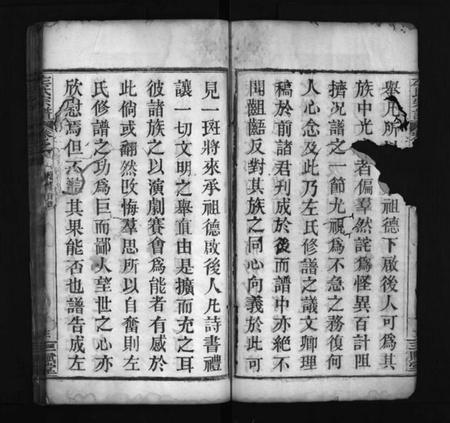 舉凡所
祖德下啟後人可為其
族中光
者偏羣然詫為怪異百計阻
擠況譜之一節尤視為不急之務復何
人心念及此乃左氏修譜之議文卿理
稿於前諸君刋成於後而譜中亦絕不
聞齟齬反對其族之同心向義於此可
見一斑將來承祖德啟後人凡詩書禮
讓一切文明之舉直由是擴而充之耳
彼諸族之以演劇賽會為能者有感於
此倘或翻然改悔羣思所以自奮則左
氏修譜之功為巨而鄙人望世之心亦
欣慰焉但不
其果能否也譜告成左